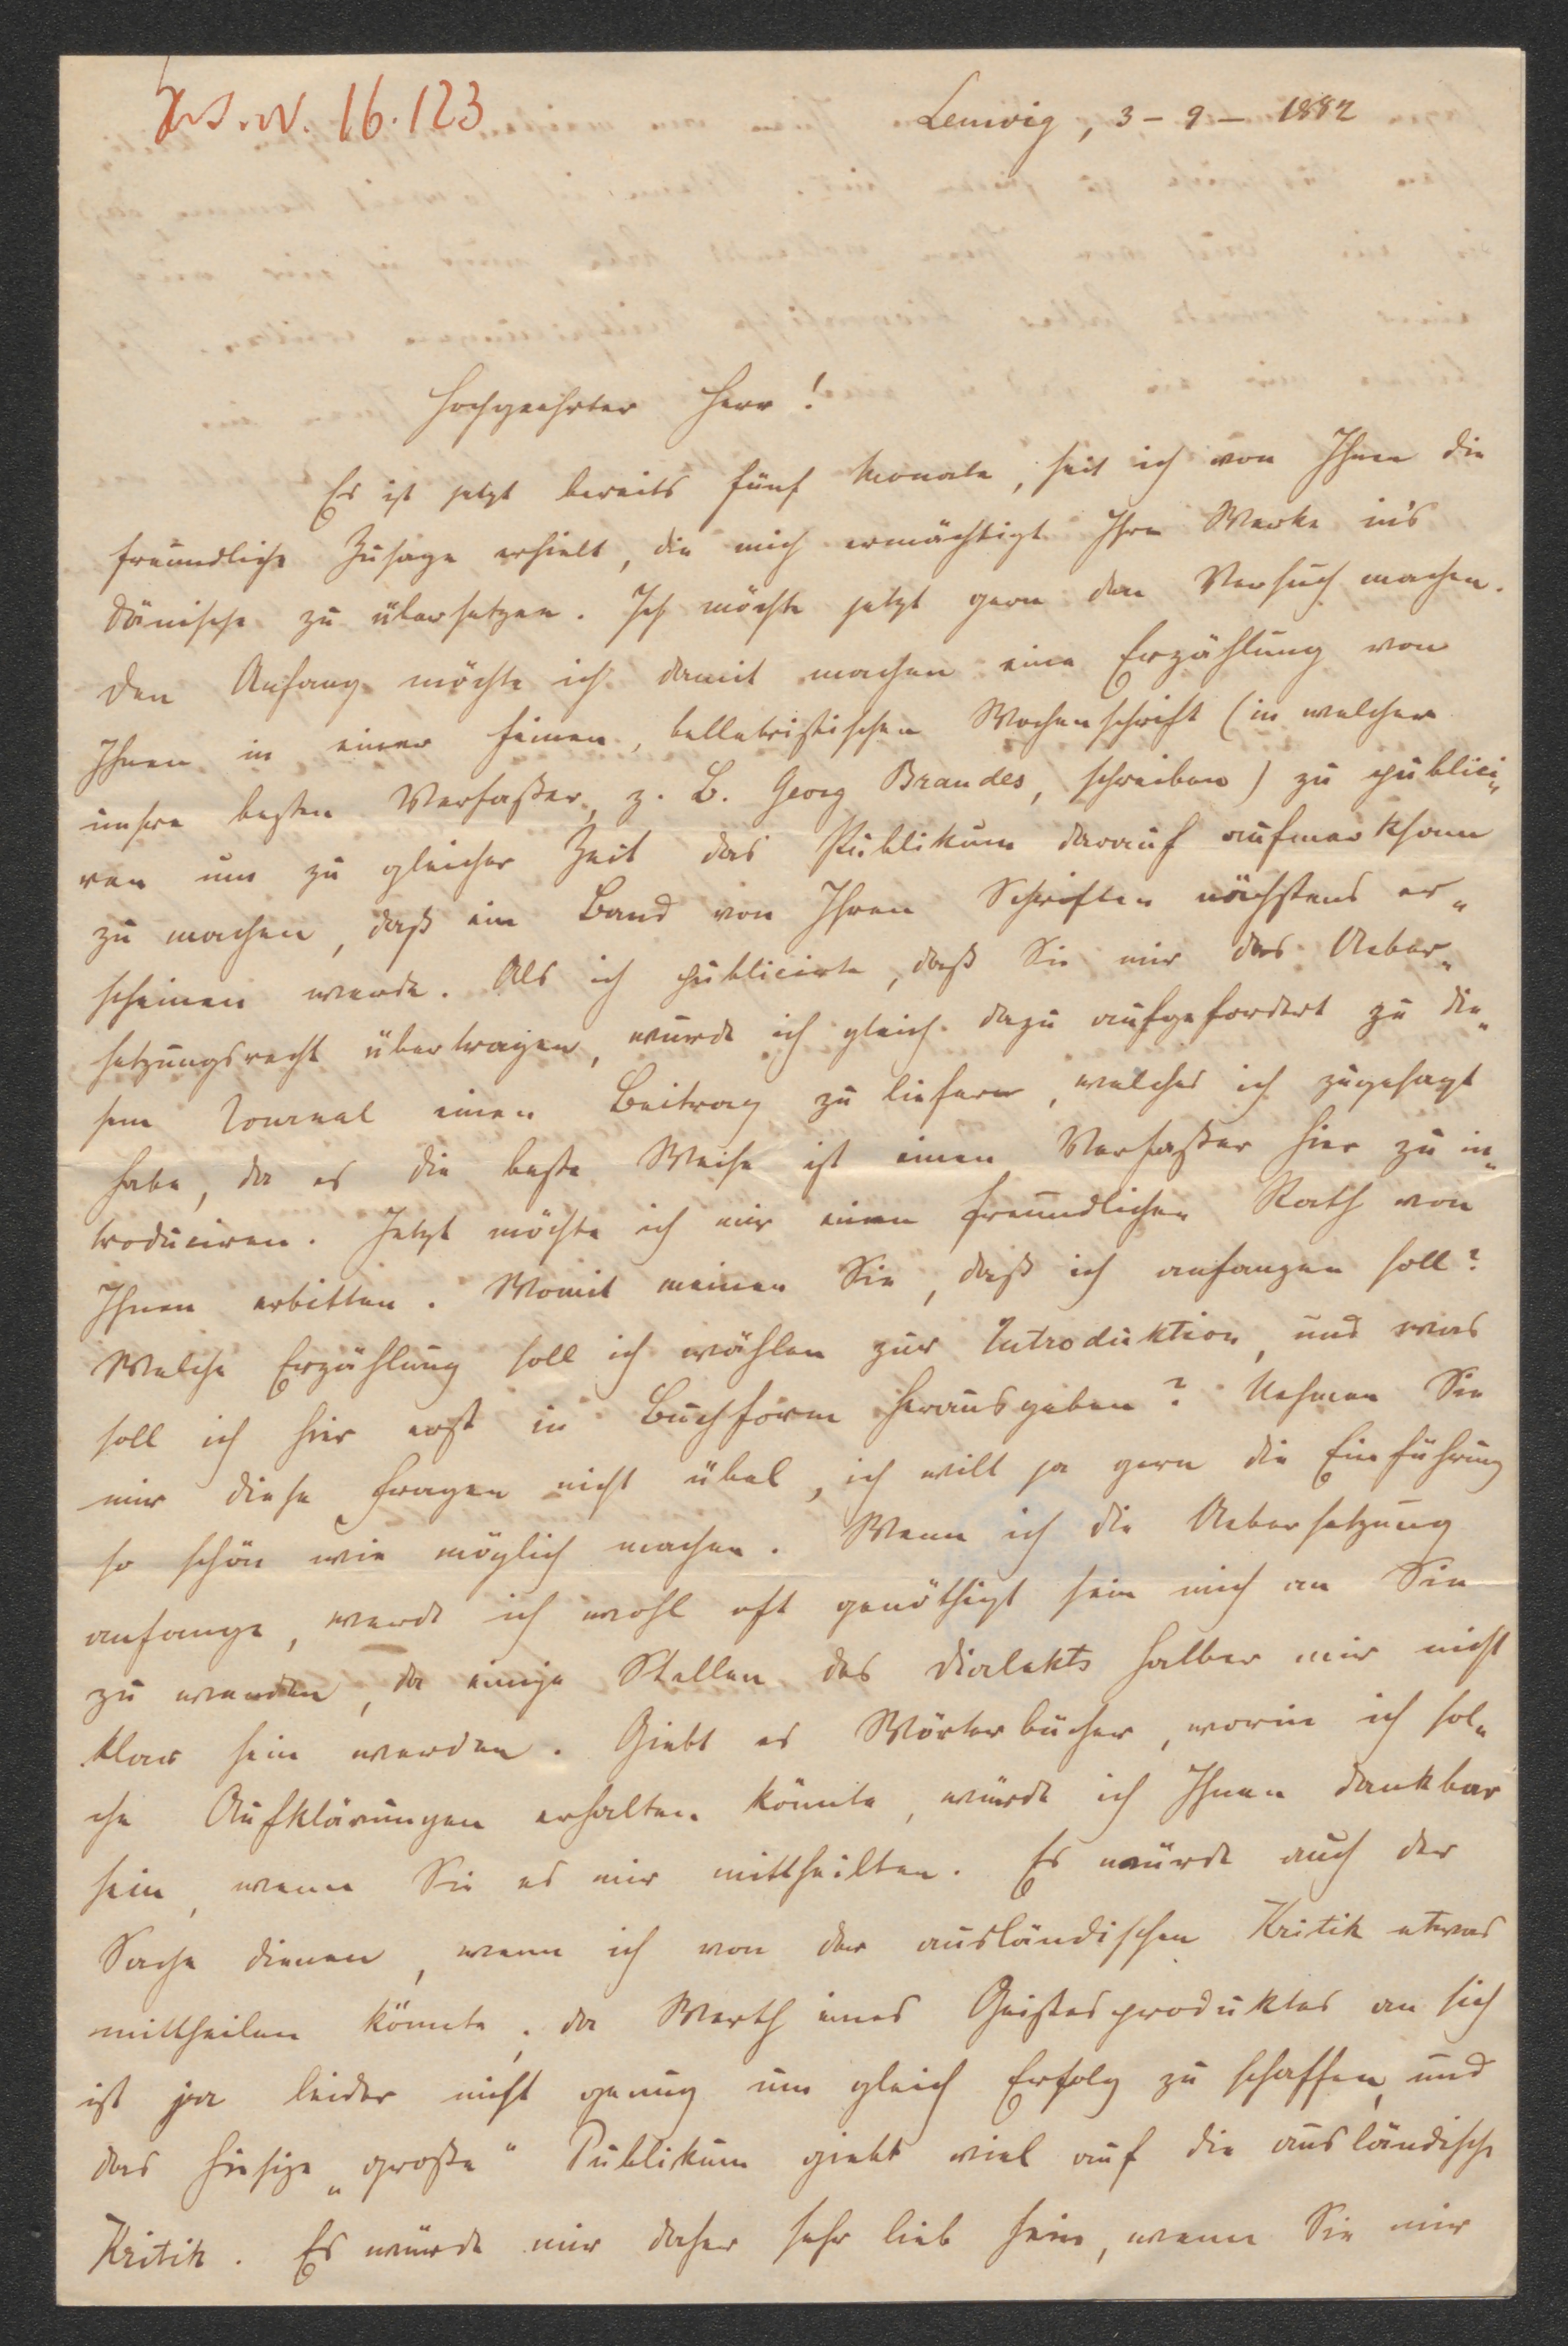 H.I.N. 16.123
Lemvig, 3 - 9 - 1882
Hochgeehrter Herr!
Es ist jetzt bereits fünf Monate, seit ich von Ihnen die
freundliche Zusage erhielt, die mich ermächtigt Ihre Werke in's
Dänische zu übersetzen. Ich möchte jetzt gern den Versuch machen.
Den Anfang möchte ich damit machen eine Erzählung von
Ihnen in einer feinen, belletristischen Wochenschrift (in welcher
unsere besten Verfaßer, z. B. Georg Brandes, schreiben) zu publici„
ren um zu gleicher Zeit das Publikum darauf aufmerksam
zu machen, daß ein Band von Ihren Schriften nächstens er„
scheinen werde. Als ich publicirte, daß Sie mir das Ueber„
setzungsrecht übertragen, wurde ich gleich dazu aufgefordert zu die„
sem Journal einen Beitrag zu liefern, welches ich zugesagt
habe, da es die beste Weise ist einen Verfaßer hier zu in„
troduciren. Jetzt möchte ich mir einen freundlichen Rath von
Ihnen erbitten. Womit meinen Sie, daß ich anfangen soll?
Welche Erzählung soll ich wählen zur Introduktion, und was
soll ich hier erst in Buchform herausgeben? Nehmen Sie
mir diese Fragen nicht übel, ich will ja gern die Einführung
so schön wie möglich machen. Wenn ich die Uebersetzung
anfange, werde ich wohl oft genöthigt sein mich an Sie
zu wenden, da einige Stellen des Dialekts halber mir nicht
klar sein werden. Giebt es Wörterbücher, worin ich sol„
che Aufklärungen erhalten könnte, würde ich Ihnen dankbar
sein, wenn Sie es mir mittheilten. Es würde auch der
Sache dienen, wenn ich von der ausländischen Kritik etwas
mittheilen könnte; da Werth eines Geistesproduktes an sich
ist ja leider nicht genug um gleich Erfolg zu schaffen, und
das hiesige „große" Publikum giebt viel auf die ausländische
Kritik. Es würde mir daher sehr lieb sein, wenn Sie mir